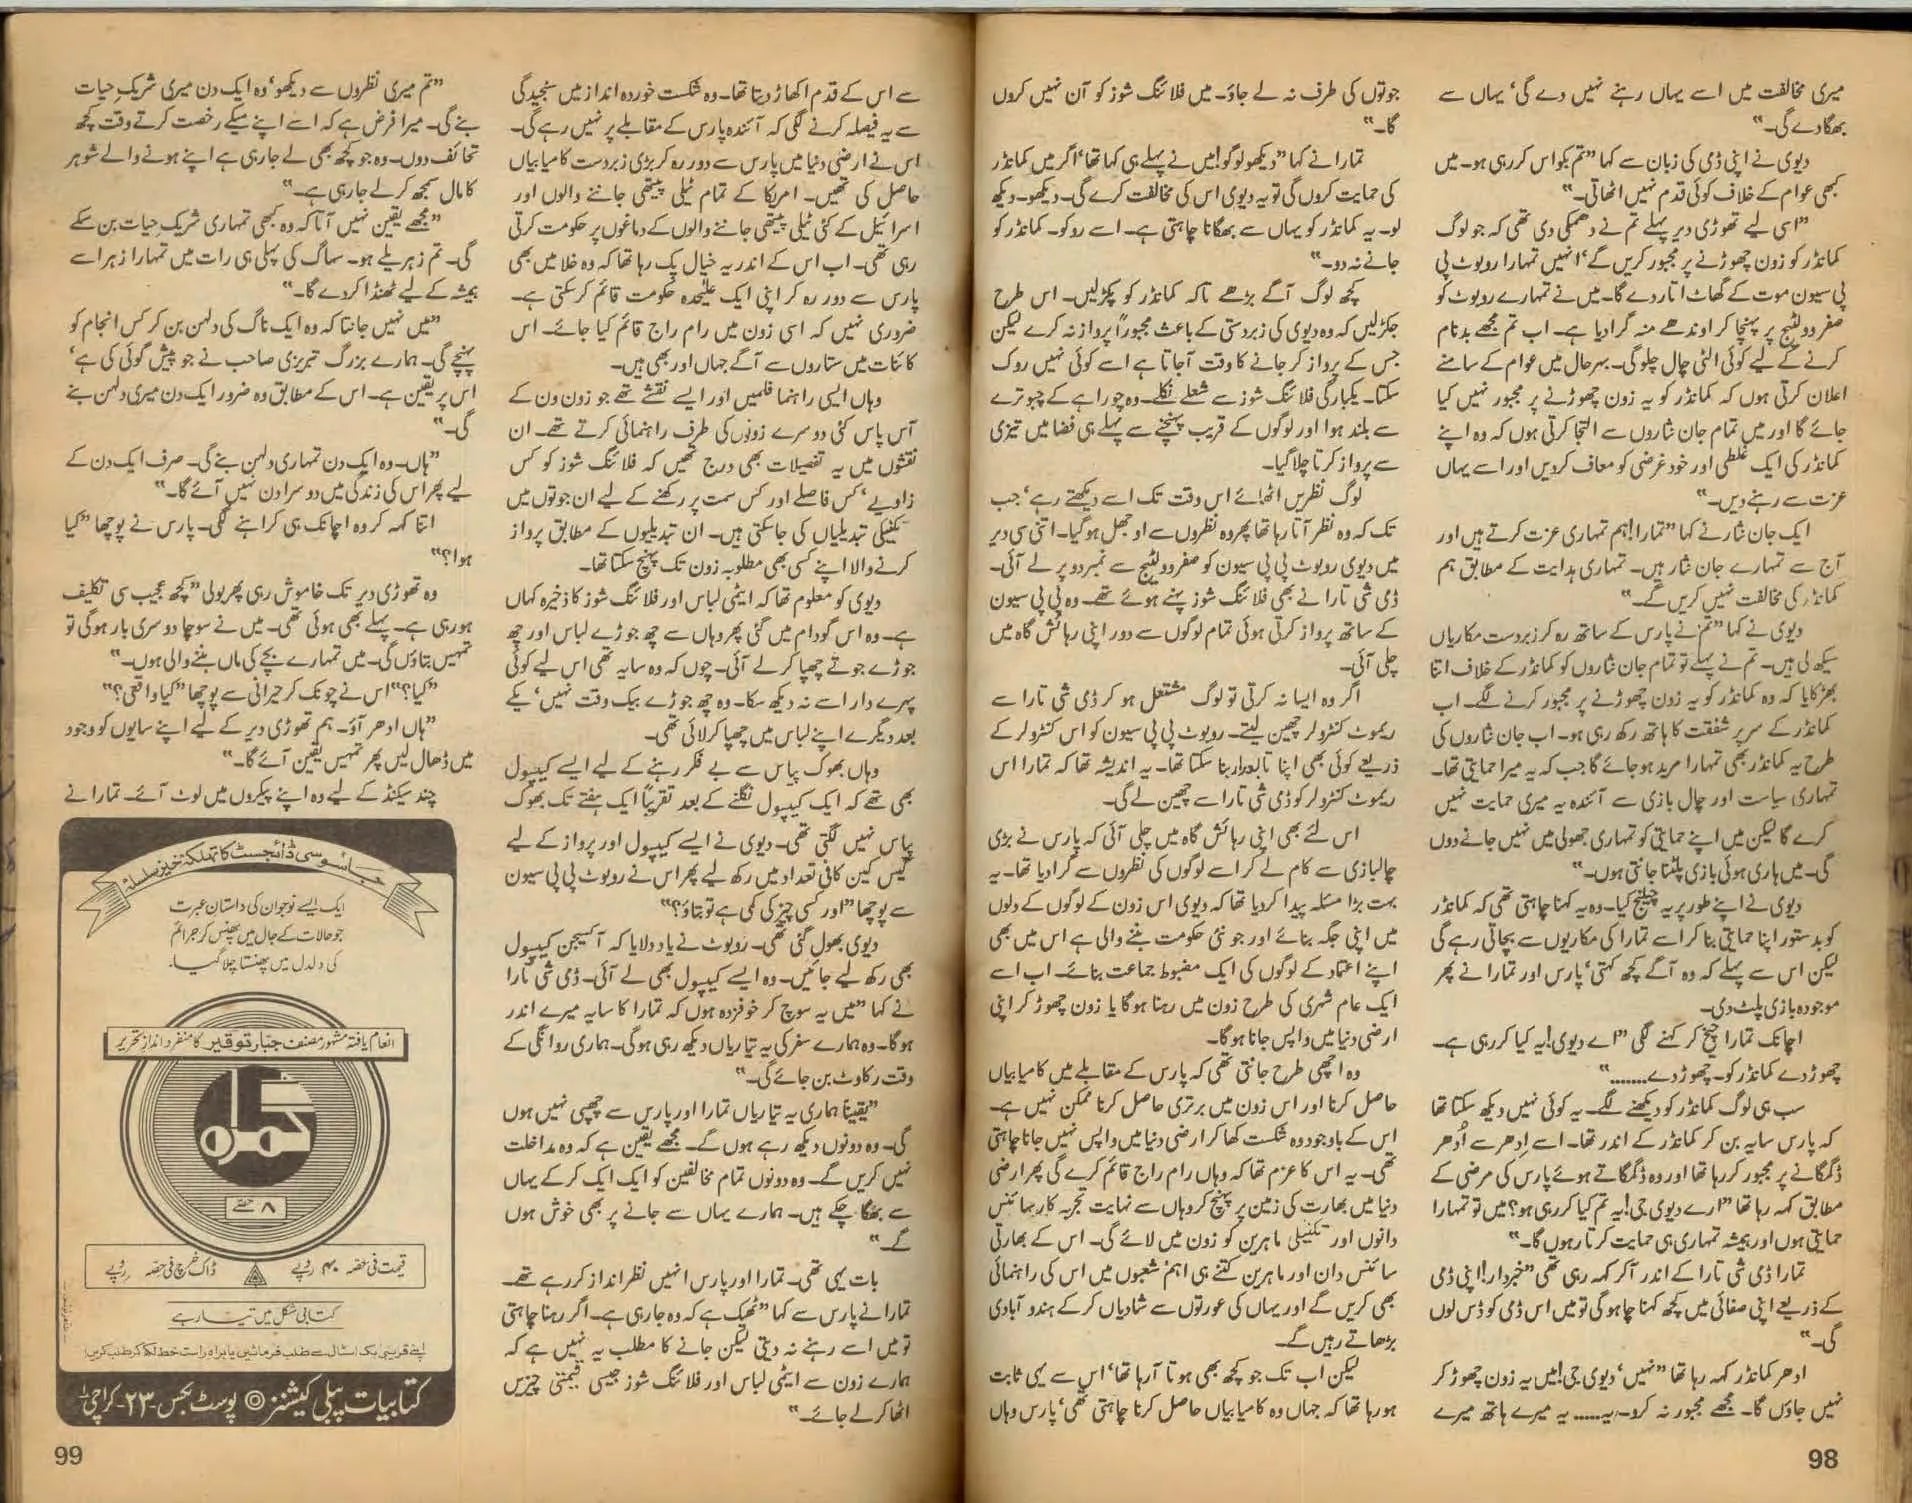 میری مخالفت میں اسے یہاں رہنے نہیں دے گی‘ یہاں سے
بھگا دے گی۔“
دیوی نے اپنی ڈمی کی زبان سے کہا ”تم بکواس کر رہی ہو۔ میں
کبھی عوام کے خلاف کوئی قدم نہیں اٹھاتی۔“
”اسی لیے تھوڑی دیر پہلے تم نے دھمکی دی تھی کہ جو لوگ
کمانڈر کو زون چھوڑنے پر مجبور کریں گے‘ انہیں تمہارا روبوٹ پی
پی سیون موت کے گھاٹ اتار دے گا۔ میں نے تمہارے روبوٹ کو
صفر وولٹیج پر پہنچا کر اوندھے منہ گرا دیا ہے۔ اب تم مجھے بدنام
کرنے کے لیے کوئی الٹی چال چلو گی۔ بہرحال میں عوام کے سامنے
اعلان کرتی ہوں کہ کمانڈر کو یہ زون چھوڑنے پر مجبور نہیں کیا
جائے گا اور میں تمام جان نثاروں سے التجا کرتی ہوں کہ وہ اپنے
کمانڈر کی ایک غلطی اور خود غرضی کو معاف کردیں اور اسے یہاں
عزت سے رہنے دیں۔“
ایک جان نثار نے کہا ”تمارا! ہم تمہاری عزت کرتے ہیں اور
آج سے تمہارے جان نثار ہیں۔ تمہاری ہدایت کے مطابق ہم
کمانڈر کی مخالفت نہیں کریں گے۔“
دیوی نے کہا ”تم نے پارس کے ساتھ رہ کر زبردست مکاریاں
سیکھ لی ہیں۔ تم نے پہلے تو تمام جان نثاروں کو کمانڈر کے خلاف اتنا
بھڑکایا کہ وہ کمانڈر کو یہ زون چھوڑنے پر مجبور کرنے لگے۔ اب
کمانڈر کے سر پر شفقت کا ہاتھ رکھ رہی ہو۔ اب جان نثاروں کی
طرح یہ کمانڈر بھی تمہارا مرید ہو جائے گا جب کہ یہ میرا حمایتی تھا۔
تمہاری سیاست اور چال بازی سے آئندہ یہ میری حمایت نہیں
کرے گا لیکن میں اپنے حمایتی کو تمہاری جھولی میں نہیں جانے دوں
گی۔ میں ہاری ہوئی بازی پلٹنا جانتی ہوں۔“
دیوی نے اپنے طور پر یہ چیلنج کیا۔ وہ یہ کہنا چاہتی تھی کہ کمانڈر
کو بدستور اپنا حمایتی بنا کر اسے تمارا کی مکاریوں سے بچاتی رہے گی
لیکن اس سے پہلے کہ وہ آگے کچھ کہتی‘ پارس اور تمارا نے پھر
موجودہ بازی پلٹ دی۔
اچانک تمارا چیخ کر کہنے لگی ”اے دیوی! یہ کیا کر رہی ہے۔
چھوڑ دے کمانڈر کو۔ چھوڑ دے.......“
سب ہی لوگ کمانڈر کو دیکھنے لگے۔ یہ کوئی نہیں دیکھ سکتا تھا
کہ پارس سایہ بن کر کمانڈر کے اندر تھا۔ اسے اِدھر سے اُدھر
ڈگمگانے پر مجبور کر رہا تھا اور وہ ڈگمگاتے ہوئے پارس کی مرضی کے
مطابق کہہ رہا تھا ”ارے دیوی جی! یہ تم کیا کر رہی ہو؟ میں تو تمہارا
حمایتی ہوں اور ہمیشہ تمہاری ہی حمایت کرتا رہوں گا۔“
تمارا ڈمی شی تارا کے اندر آ کر کہہ رہی تھی ”خبردار! اپنی ڈمی
کے ذریعے اپنی صفائی میں کچھ کہنا چاہو گی تو میں اس ڈمی کو ڈس لوں
گی۔“
ادھر کمانڈر کہہ رہا تھا ”نہیں‘ دیوی جی! میں یہ زون چھوڑ کر
نہیں جاؤں گا۔ مجھے مجبور نہ کرو۔ یہ..... یہ میرے ہاتھ میرے
98
جوتوں کی طرف نہ لے جاؤ۔ میں فلائنگ شوز کو آن نہیں کروں
گا۔“
تمارا نے کہا ”دیکھو لوگو! میں نے پہلے ہی کہا تھا‘ اگر میں کمانڈر
کی حمایت کروں گی تو یہ دیوی اس کی مخالفت کرے گی۔ دیکھو۔ دیکھ
لو۔ یہ کمانڈر کو یہاں سے بھگانا چاہتی ہے۔ اسے روکو۔ کمانڈر کو
جانے نہ دو۔“
کچھ لوگ آگے بڑھے تاکہ کمانڈر کو پکڑ لیں۔ اس طرح
جکڑ لیں کہ وہ دیوی کی زبردستی کے باعث مجبوراً پرواز نہ کرے لیکن
جس کے پرواز کر جانے کا وقت آجاتا ہے اسے کوئی نہیں روک
سکتا۔ یکبارگی فلائنگ شوز سے شعلے نکلے۔ وہ چوراہے کے چبوترے
سے بلند ہوا اور لوگوں کے قریب پہنچنے سے پہلے ہی فضا میں تیزی
سے پرواز کرتا چلا گیا۔
لوگ نظریں اٹھائے اس وقت تک اسے دیکھتے رہے‘ جب
تک کہ وہ نظر آتا رہا تھا پھر وہ نظروں سے اوجھل ہو گیا۔ اتنی سی دیر
میں دیوی روبوٹ پی پی سیون کو صفر وولٹیج سے نمبر دو پر لے آئی۔
ڈمی شی تارا نے بھی فلائنگ شوز پہنے ہوئے تھے۔ وہ پی پی سیون
کے ساتھ پرواز کرتی ہوئی تمام لوگوں سے دور اپنی رہائش گاہ میں
چلی آئی۔
اگر وہ ایسا نہ کرتی تو لوگ مشتعل ہو کر ڈمی شی تارا سے
ریموٹ کنٹرولر چھین لیتے۔ روبوٹ پی پی سیون کو اس کنٹرولر کے
ذریعے کوئی بھی اپنا تابعدار بنا سکتا تھا۔ یہ اندیشہ تھا کہ تمارا اس
ریموٹ کنٹرولر کو ڈمی شی تارا سے چھین لے گی۔
اس لئے بھی اپنی رہائش گاہ میں چلی آئی کہ پارس نے بڑی
چالبازی سے کام لے کر اسے لوگوں کی نظروں سے گرا دیا تھا۔ یہ
بہت بڑا مسئلہ پیدا کر دیا تھا کہ دیوی اس زون کے لوگوں کے دلوں
میں اپنی جگہ بنائے اور جو نئی حکومت بننے والی ہے اس میں بھی
اپنے اعتماد کے لوگوں کی ایک مضبوط جماعت بنائے۔ اب اسے
ایک عام شہری کی طرح زون میں رہنا ہوگا یا زون چھوڑ کر اپنی
ارضی دنیا میں واپس جانا ہوگا۔
وہ اچھی طرح جانتی تھی کہ پارس کے مقابلے میں کامیابیاں
حاصل کرنا اور اس زون میں برتری حاصل کرنا ممکن نہیں ہے۔
اس کے باوجود وہ شکست کھا کر ارضی دنیا میں واپس نہیں جانا چاہتی
تھی۔ یہ اس کا عزم تھا کہ وہاں رام راج قائم کرے گی پھر ارضی
دنیا میں بھارت کی زمین پر پہنچ کر وہاں سے نہایت تجربہ کار سائنس
دانوں اور تکنیکی ماہرین کو زون میں لائے گی۔ اس کے بھارتی
سائنس دان اور ماہرین کتنے ہی اہم شعبوں میں اس کی راہنمائی
بھی کریں گے اور یہاں کی عورتوں سے شادیاں کر کے ہندو آبادی
بڑھاتے رہیں گے۔
لیکن اب تک جو کچھ بھی ہوتا آرہا تھا‘ اس سے یہی ثابت
ہو رہا تھا کہ جہاں وہ کامیابیاں حاصل کرنا چاہتی تھی‘ پارس وہاں
سے اس کے قدم اکھاڑ دیتا تھا۔ وہ شکست خوردہ انداز میں سنجیدگی
سے یہ فیصلہ کرنے لگی کہ آئندہ پارس کے مقابلے پر نہیں رہے گی۔
اس نے ارضی دنیا میں پارس سے دور رہ کر بڑی زبردست کامیابیاں
حاصل کی تھیں۔ امریکا کے تمام ٹیلی پیتھی جاننے والوں اور
اسرائیل کے کئی ٹیلی پیتھی جاننے والوں کے دماغوں پر حکومت کرتی
رہی تھی۔ اب اس کے اندر یہ خیال پک رہا تھا کہ وہ خلا میں بھی
پارس سے دور رہ کر اپنی ایک علیٰحدہ حکومت قائم کر سکتی ہے۔
ضروری نہیں کہ اسی زون میں رام راج قائم کیا جائے۔ اس
کائنات میں ستاروں سے آگے جہاں اور بھی ہیں۔
وہاں ایسی راہنما فلمیں اور ایسے نقشے تھے جو زون ون کے
آس پاس کئی دوسرے زونوں کی طرف راہنمائی کرتے تھے۔ ان
نقشوں میں یہ تفصیلات بھی درج تھیں کہ فلائنگ شوز کو کس
زاویے‘ کس فاصلے اور کس سمت پر رکھنے کے لیے ان جوتوں میں
تکنیکی تبدیلیاں کی جا سکتی ہیں۔ ان تبدیلیوں کے مطابق پرواز
کرنے والا اپنے کسی بھی مطلوبہ زون تک پہنچ سکتا تھا۔
دیوی کو معلوم تھا کہ ایٹمی لباس اور فلائنگ شوز کا ذخیرہ کہاں
ہے۔ وہ اس گودام میں گئی پھر وہاں سے چھ جوڑے لباس اور چھ
جوڑے جوتے چھپا کر لے آئی۔ چوں کہ وہ سایہ تھی اس لیے کوئی
پہرے دار اسے نہ دیکھ سکا۔ وہ چھ جوڑے بیک وقت نہیں‘ یکے
بعد دیگرے اپنے لباس میں چھپا کر لائی تھی۔
وہاں بھوک پیاس سے بے فکر رہنے کے لیے ایسے کیپسول
بھی تھے کہ ایک کیپسول نگلنے کے بعد تقریباً ایک ہفتے تک بھوک
پیاس نہیں لگتی تھی۔ دیوی نے ایسے کیپسول اور پرواز کے لیے
گیس کین کافی تعداد میں رکھ لیے پھر اس نے روبوٹ پی پی سیون
سے پوچھا ”اور کسی چیز کی کمی ہے تو بتاؤ؟“
دیوی بھول گئی تھی۔ روبوٹ نے یاد دلایا کہ آکسیجن کیپسول
بھی رکھ لیے جائیں۔ وہ ایسے کیپسول بھی لے آئی۔ ڈمی شی تارا
نے کہا ”میں یہ سوچ کر خوفزدہ ہوں کہ تمارا کا سایہ میرے اندر
ہوگا۔ وہ ہمارے سفر کی یہ تیاریاں دیکھ رہی ہوگی۔ ہماری روانگی کے
وقت رکاوٹ بن جائے گی۔“
”یقیناً ہماری یہ تیاریاں تمارا اور پارس سے چھپی نہیں ہوں
گی۔ وہ دونوں دیکھ رہے ہوں گے۔ مجھے یقین ہے کہ وہ مداخلت
نہیں کریں گے۔ وہ دونوں تمام مخالفین کو ایک ایک کر کے یہاں
سے بھگا چکے ہیں۔ ہمارے یہاں سے جانے پر بھی خوش ہوں
گے۔“
بات یہی تھی۔ تمارا اور پارس انہیں نظر انداز کر رہے تھے۔
تمارا نے پارس سے کہا ”ٹھیک ہے کہ وہ جا رہی ہے۔ اگر رہنا چاہتی
تو میں اسے رہنے نہ دیتی لیکن جانے کا مطلب یہ نہیں ہے کہ
ہمارے زون سے ایٹمی لباس اور فلائنگ شوز جیسی قیمتی چیزیں
اٹھا کر لے جائے۔“
”تم میری نظروں سے دیکھو‘ وہ ایک دن میری شریکِ حیات
بنے گی۔ میرا فرض ہے کہ اسے اپنے میکے رخصت کرتے وقت کچھ
تحائف دوں۔ وہ جو کچھ بھی لے جا رہی ہے اپنے ہونے والے شوہر
کا مال سمجھ کر لے جا رہی ہے۔“
”مجھے یقین نہیں آتا کہ وہ کبھی تمہاری شریک حیات بن سکے
گی۔ تم زہریلے ہو۔ سہاگ کی پہلی ہی رات میں تمہارا زہر اسے
ہمیشہ کے لیے ٹھنڈا کر دے گا۔“
”میں نہیں جانتا کہ وہ ایک ناگ کی دلہن بن کر کس انجام کو
پہنچے گی۔ ہمارے بزرگ تبریزی صاحب نے جو پیش گوئی کی ہے‘
اس پر یقین ہے۔ اس کے مطابق وہ ضرور ایک دن میری دلہن بنے
گی۔“
”ہاں۔ وہ ایک دن تمہاری دلہن بنے گی۔ صرف ایک دن کے
لیے پھر اس کی زندگی میں دوسرا دن نہیں آئے گا۔“
اتنا کہہ کر وہ اچانک ہی کراہنے لگی۔ پارس نے پوچھا ”کیا
ہوا؟“
وہ تھوڑی دیر تک خاموش رہی پھر بولی ”کچھ عجیب سی تکلیف
ہو رہی ہے۔ پہلے بھی ہوئی تھی۔ میں نے سوچا دوسری بار ہوگی تو
تمہیں بتاؤں گی۔ میں تمہارے بچے کی ماں بننے والی ہوں۔“
”کیا؟“ اس نے چونک کر حیرانی سے پوچھا ”کیا واقعی؟“
”ہاں ادھر آؤ۔ ہم تھوڑی دیر کے لیے اپنے سایوں کو وجود
میں ڈھال لیں پھر تمہیں یقین آئے گا۔“
چند سیکنڈ کے لیے وہ اپنے پیکروں میں لوٹ آئے۔ تمارا نے
جاسوسی ڈائجسٹ کا تہلکہ خیز سلسلہ
ایک ایسے نوجوان کی داستان عبرت
جو حالات کے جال میں پھنس کر جرائم
کی دلدل میں پھنستا چلا گیا۔
انعام یافتہ مشہور مصنف جبار توقیر کا منفرد انداز تحریر
۸ حصّے
قیمت فی حصّہ ۴۰ روپے ڈاک خرچ فی حصّہ روپے
کتابی شکل میں تیار ہے
اپنے قریبی بک اسٹال سے طلب فرمائیں یا براہ راست خط لکھ کر طلب کریں
کتابیات پبلی کیشنز © پوسٹ بکس ۲۳۔ کراچی
99